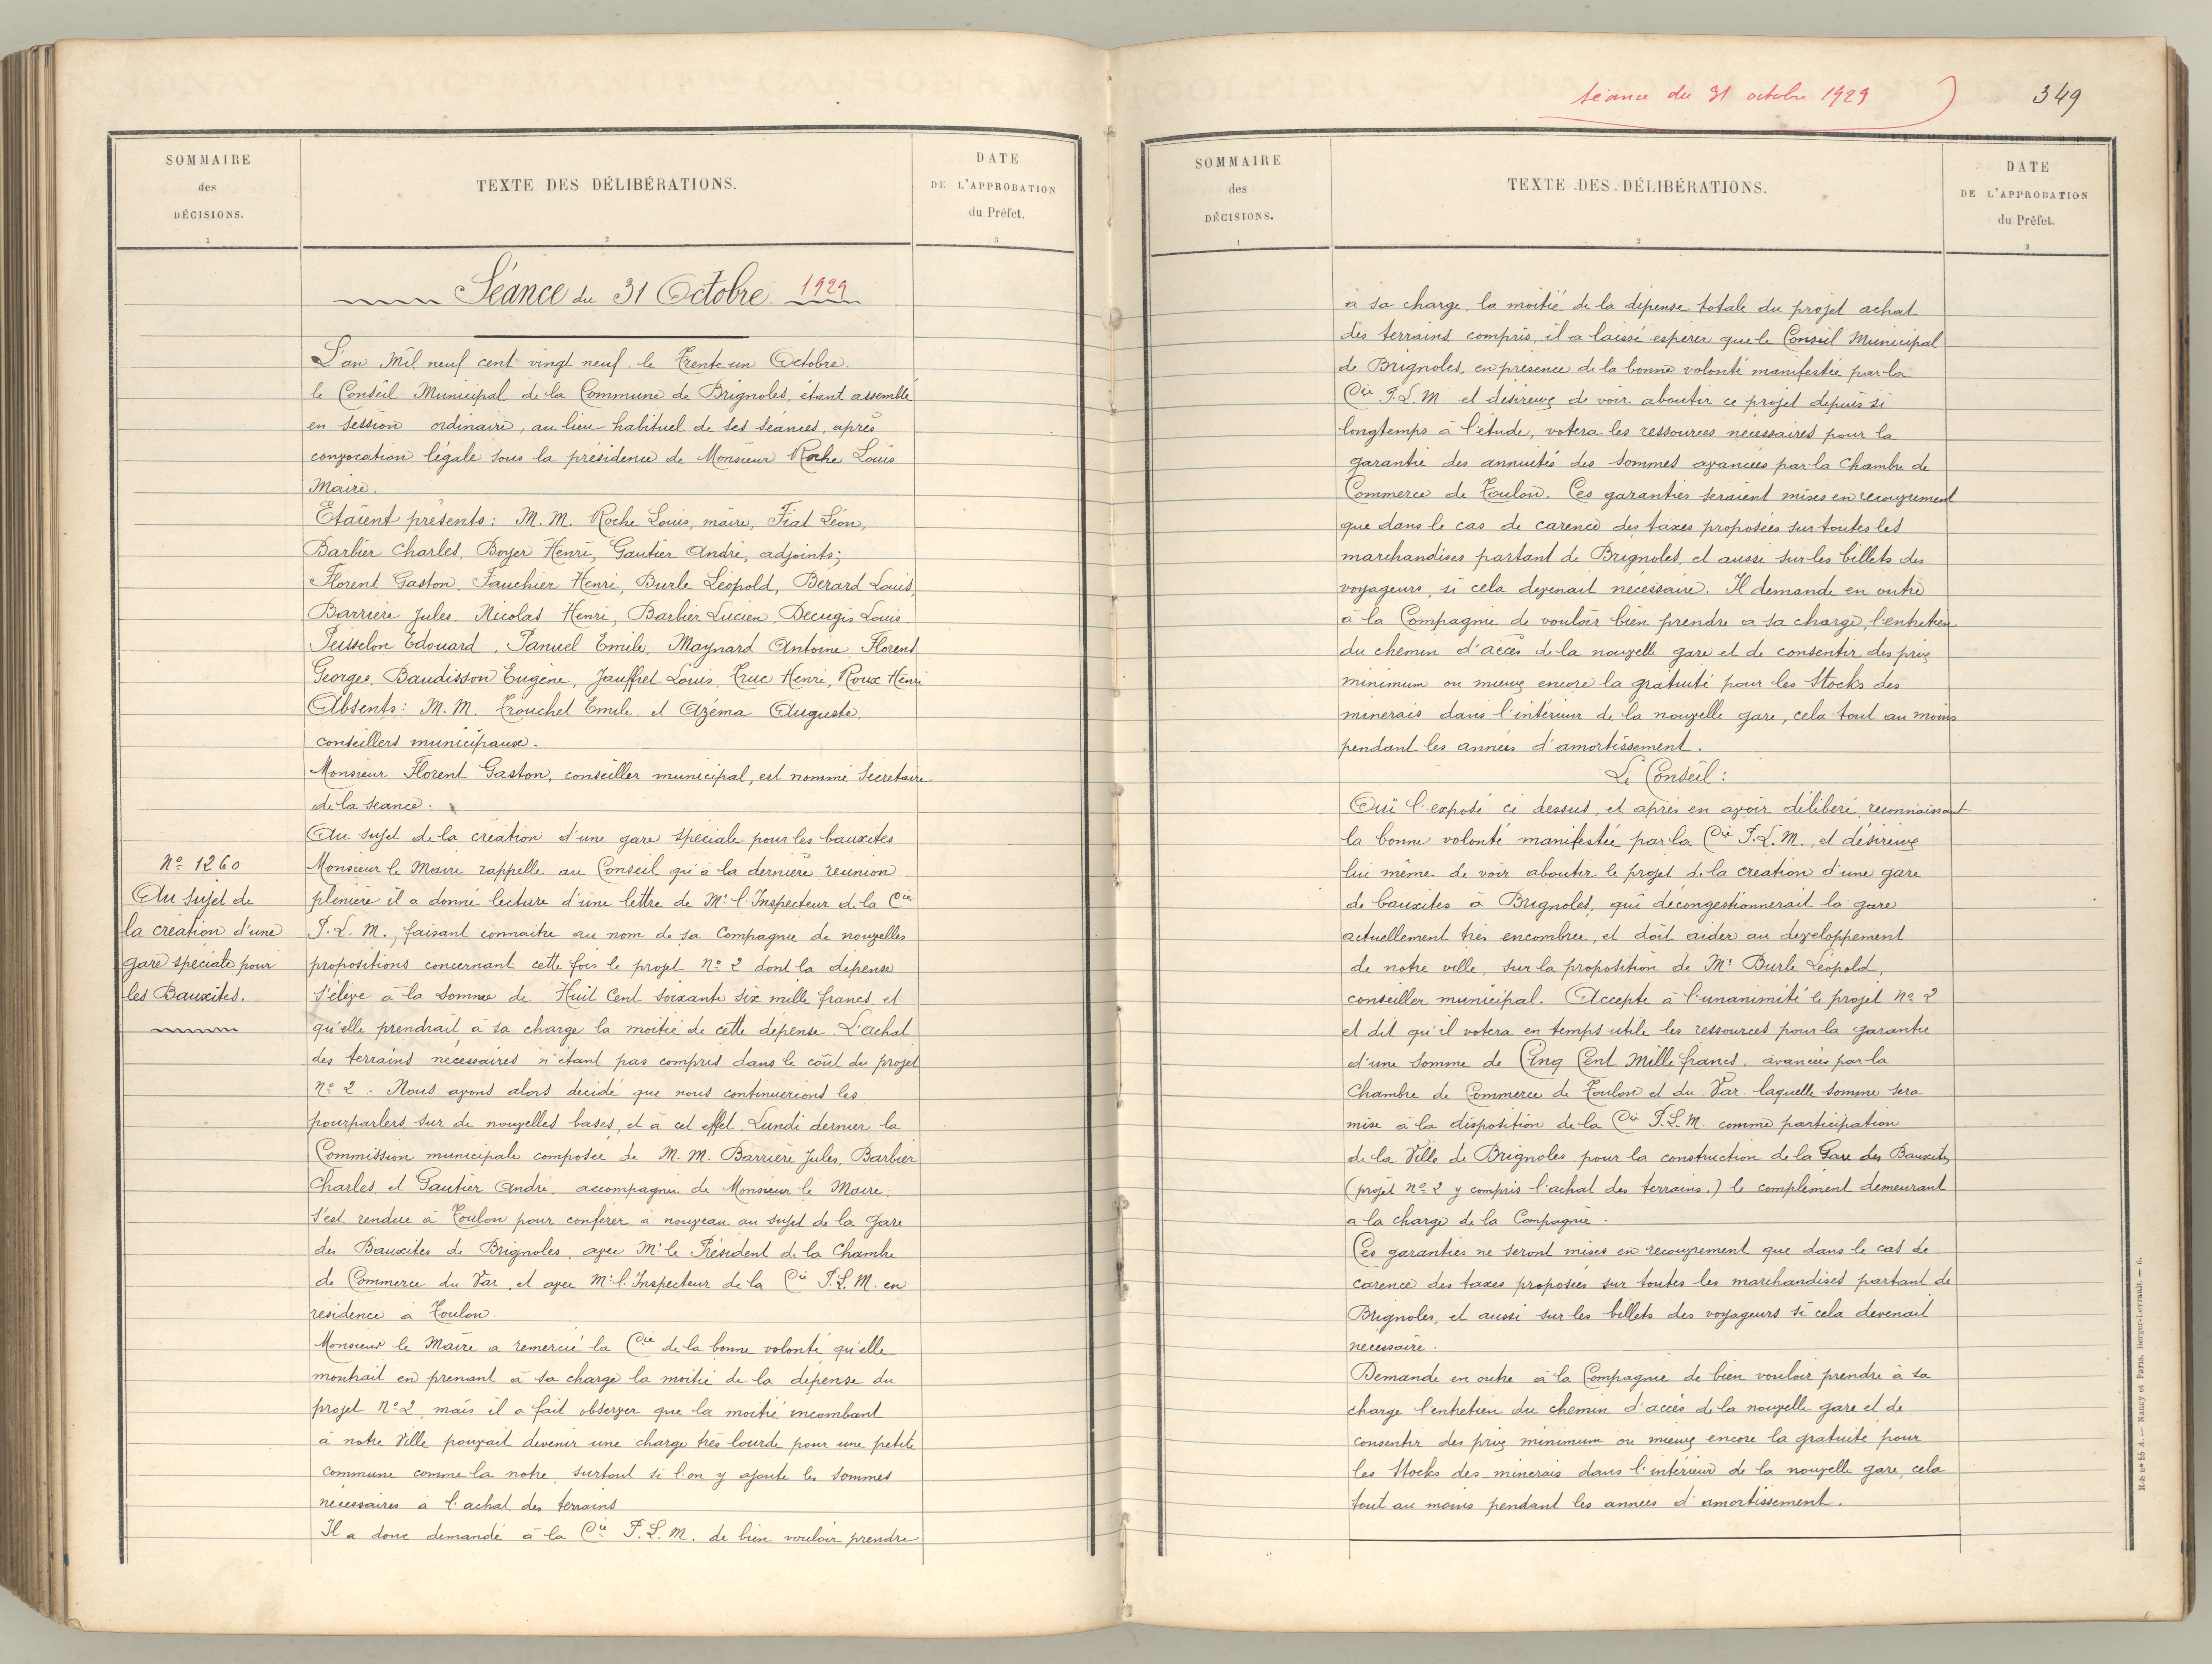 SOMMAIRE
des
DÉCISIONS.
1
TEXTE DES DÉLIBÉRATIONS.
2
DATE
DE L'APPROBATION
du Préfet.
3
Séance du 31 Octobre 1929
L'an Mil neuf cent vingt neuf le Trente un Octobre.
le Conseil Municipal de la Commune de Brignoles, étant assemblé
en session ordinaire, au lieu habituel de ses séances, après
convocation légale sous la présidence de Monsieur Roche Louis
Maire.
Etaient présents: M.M. Roche Louis, maire, Fiat Léon,
Barbier Charles, Boyer Henri, Gautier André, adjoints;
Florent Gaston, Fauchier Henri, Burle Léopold, Berard Louis,
Barrière Jules, Nicolas Henri, Barbier Lucien, Decugis Louis
Peisselon Edouard, Panuel Emile, Maynard Antoine, Florens
Georges, Baudisson Eugène, Jauffret Louis, Truc Henri, Roux Henri
Absents: M.M. Trouchet Emile et Azema Auguste,
conseillers municipaux.
Monsieur Florent Gaston, conseiller municipal, est nommé Secretaire
de la séance.
Au sujet de la création d'une gare spéciale pour les bauxites
Nº 1260
Au sujet de
la création d'une
gare spéciale pour
les Bauxites.
Monsieur le Maire rappelle au Conseil qu'à la dernière réunion
plenière il a donné lecture d'une lettre de Mr l'Inspecteur de la Cie
P.L.M., faisant connaitre au nom de sa Compagnie de nouvelles
propositions concernant cette fois le projet Nº 2 dont la dépense
s'élève à la somme de Huit Cent soixante six mille francs et
qu'elle prendrait à sa charge la moitié de cette dépense. L'achat
des terrains nécessaires n'étant pas compris dans le coût du projet
Nº 2. Nous avons alors décidé que nous continuerions les
pourparlers sur de nouvelles bases, et à cet effet, Lundi dernier la
Commission municipale composée de M.M. Barrière Jules, Barbier
Charles et Gautier André. accompagnée de Monsieur le Maire.
s'est rendue à Toulon pour conférer à nouveau au sujet de la Gare
des Bauxites de Brignoles, avec Mr le Président de la Chambre
de Commerce du Var et avec Mr l'Inspecteur de la Cie P.L.M. en
résidence à Toulon.
Monsieur le Maire a remercié la Cie de la bonne volonté qu'elle
montrait en prenant à sa charge la moitié de la dépense du
projet Nº 2, mais il a fait observer que la moitié incombant
à notre Ville pouvait devenir une charge très lourde pour une petite
commune comme la notre, surtout si l'on y ajoute les sommes
nécessaires à l'achat des terrains
Il a donc demandé à la Cie P.L.M. de bien vouloir prendre
Séance du 31 octobre 1929
349
SOMMAIRE
des
DÉCISIONS.
1
TEXTE DES DÉLIBÉRATIONS.
2
DATE
DE L'APPROBATION
du Préfet.
3
à sa charge la moitié de la dépense totale du projet achat
des terrains compris, il a laissé espérer que le Conseil Municipal
de Brignoles, en présence de la bonne volonté manifestée par la
Cie P.L.M. et désireux de voir aboutir ce projet depuis si
longtemps à l'étude, votera les ressources nécessaires pour la
garantie des annuités des sommes avancées par la Chambre de
Commerce de Toulon. Ces garanties seraient mises en recouvrement
que dans le cas de carence des taxes proposées sur toutes les
marchandises partant de Brignoles, et aussi sur les billets des
voyageurs, si cela devenait nécessaire. Il demande en outre
à la Compagnie de vouloir bien prendre a sa charge, l'entretien
du chemin d'accès de la nouvelle gare et de consentir des prix
minimum ou mieux encore la gratuité pour les Stocks des
minerais dans l'intérieur de la nouvelle gare, cela tout au moins
pendant les années d'amortissement.
Le Conseil:
Ouï l'exposé ci dessus, et après en avoir délibéré, reconnaissant
la bonne volonté manifestée par la Cie P.L.M., et désireux
lui même de voir aboutir le projet de la création d'une gare
de bauxites à Brignoles, qui décongestionnerait la gare
actuellement très encombrée, et doit aider au developpement
de notre ville, sur la proposition de Mr Burle Léopold,
conseiller municipal. Accepte à l'unanimité le projet Nº 2
et dit qu'il votera en temps utile les ressources pour la garantie
d'une somme de Cinq Cent Mille francs. avancées par la
Chambre de Commerce de Toulon et du Var laquelle somme sera
mise à la disposition de la Cie P.L.M. comme participation
de la Ville de Brignoles pour la construction de la Gare des Bauxites
(projet Nº 2 y compris l'achat des terrains.) le complément demeurant
a la charge de la Compagnie.
Ces garanties ne seront mises en recouvrement que dans le cas de
carence des taxes proposées sur toutes les marchandises partant de
Brignoles, et aussi sur les billets des voyageurs si cela devenait
necessaire.
Demande en outre à la Compagnie de bien vouloir prendre à sa
charge l'entretien du chemin d'accès de la nouvelle gare et de
consentir des prix minimum ou mieux encore la gratuité pour
les Stocks des minerais dans l'intérieur de la nouvelle gare, cela
tout au moins pendant les années d'amortissement.
R-b nº 55 A. — Nancy et Paris, Berger-Levrault. — 6.